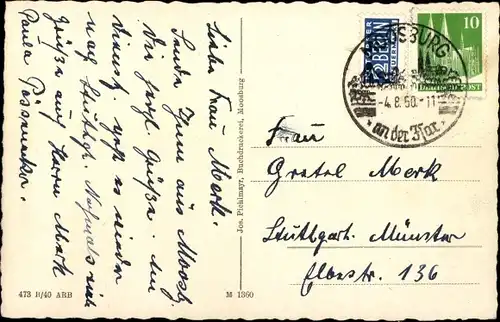 Liebe Frau Merk.
Sende Ihnen aus Moosbg.
die herzl. Grüße. Am
Dienstg. geht es wieder
nach Stuttgt. Nochmals viele
Grüße auch Herrn Merk
Paula
473 B/40 ARB
Jos. Pichlmayr, Buchdruckerei, Moosburg
M 1360
NOTOPFER
2 BERLIN
STEUERMARKE
10
DEUTSCHE POST
MOOSBURG
-4.8.50.-11
an der Isar
Frau
Gretel Merk
Stuttgart. Münster
Elbestr. 136